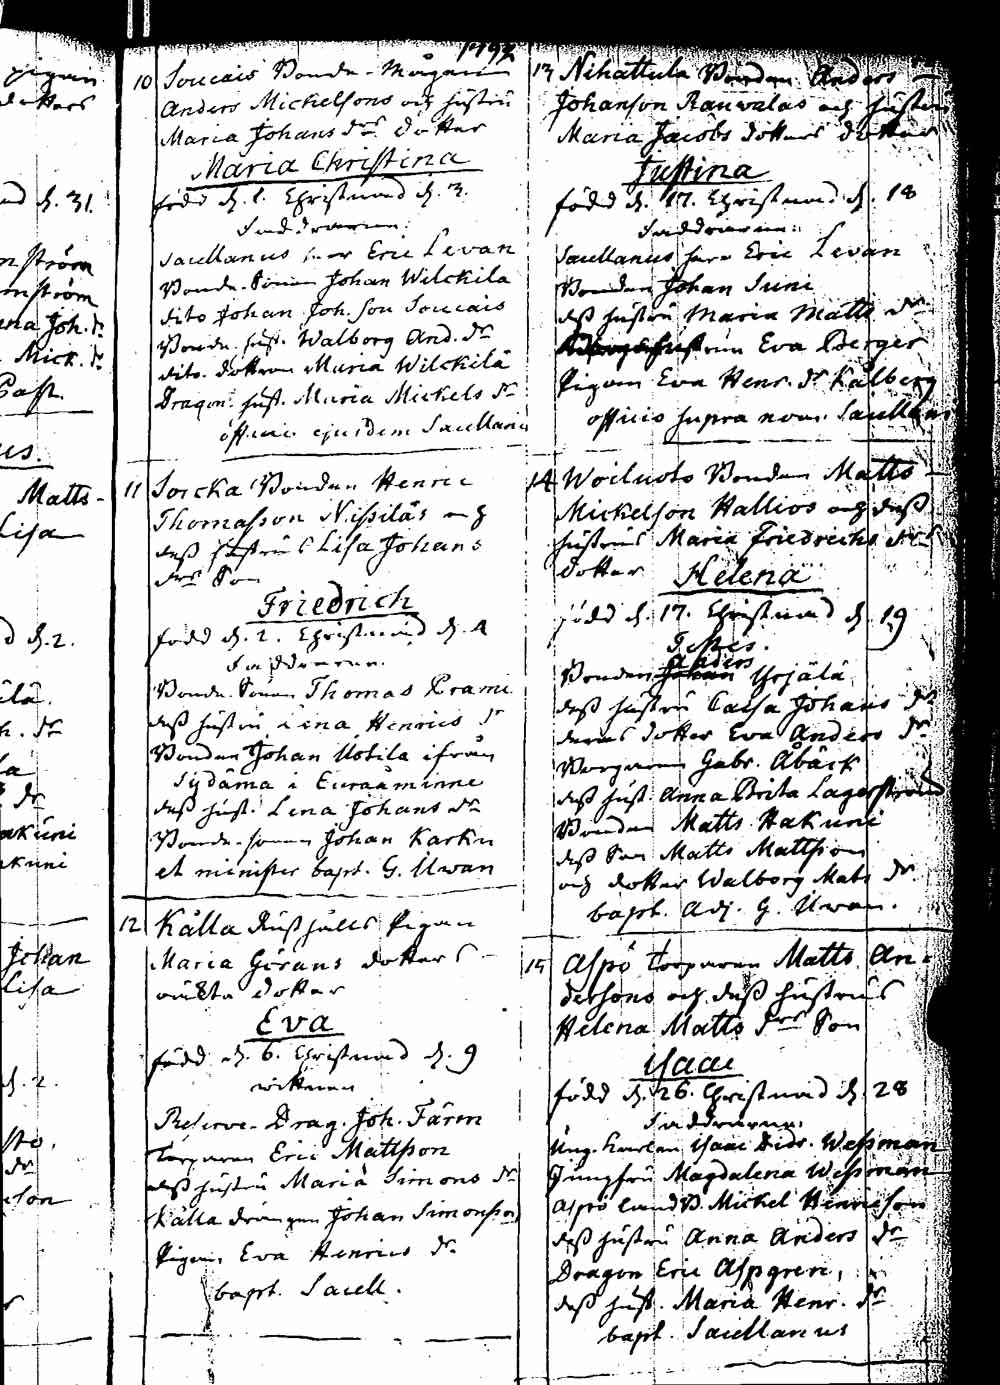 pigan
dotters
d. 31.
ström
ström
Joh. dr
Mick. dr
Past.
us.
Matts-
Lisa
d. 2.
ilä.
h. dr
la
dr
akuni
akuni
Johan
Lisa
d. 2.
sto.
dr
son
1792
10 Soucais Bonde-Mågens
Anders Michelsons och hustru
Maria Johans drs dotter
Maria Christina
född d. 1. Christnad d. 3.
Faddrarna:
Sacellanus herr Eric Levan
Bonde-Sonen Johan Wilckilä
dito Johan Joh. Son Soucais
Bonde hust. Walborg And. dr
dito dottren Maria Wilckilä
Dragon. hust. Maria Mickels dr
officio ejusdem Sacellani
11 Sorcka Bonden Henric
Thomasson Nissiläs och
dess hustrus Lisa Johans
drs Son
Friedrich
född d. 2. Christnad d. 4
Faddrarna.
Bonde Sonen Thomas Prami
dess hustru Lena Henrics dr
Bonden Johan Uotila ifrån
Sydämä i Euraåminne
dess hust. Lena Johans dr
Bonde-sonen Johan Karku
et minister bapt. G. Uwan
12 Kålla Rusthålls Pigan
Maria Görans dotters
oäkta dotter
Eva
född d. 6. Christnad d. 9
wittnen
Reserve-Drag. Joh. Färm
Torparen Eric Mattsson
dess hustru Maria Simons dr
Kålla drängen Johan Simonsson
Pigan Eva Henrics dr
bapt. Sacell.
13 Nihattula Bonden Anders
Johanson Rauwalas och hustru
Maria Jacobs dotters dotter
Justina
född d. 17. Christnad d. 18
Faddrarna:
Sacellanus herr Eric Levan
Bonden Johan Suni
dess hustru Maria Matts dr
hustrun Eva Berger
Pigan Eva Henr. dr Kålberg
officio supra nom. Sacellani
14 Woiluoto Bonden Matts
Mickelson Hallios och dess
hustrus Maria Friedrichs drs
dotter Helena
född d. 17. Christnad d. 19
Testes.
Anders
Bonden Johan Yrjälä
dess hustru Caisa Johans dr
deras dotter Eva Anders dr
Borgaren Gabr. Åbäck
dess hust. Anna Brita Lagerstrand
Bonden Matts Hakuni
dess Son Matts Mattsson
och dotter Walborg Mats dr.
bapt. Adj. G. Uwan.
15 Aspö Torparen Matts An-
dersons och dess hustrus
Helena Matts drs Son
Isaac
född d. 26. Christnad d. 28
Faddrarna:
Ung. karlen Isaac Didr. Wessman
Jungfru Magdalena Wessman
Aspö Land B. Mickel Henricson
dess hustru Anna Anders dr
Dragon Eric Aspgren,
dess hust. Maria Henr. dr
bapt. Sacellanus